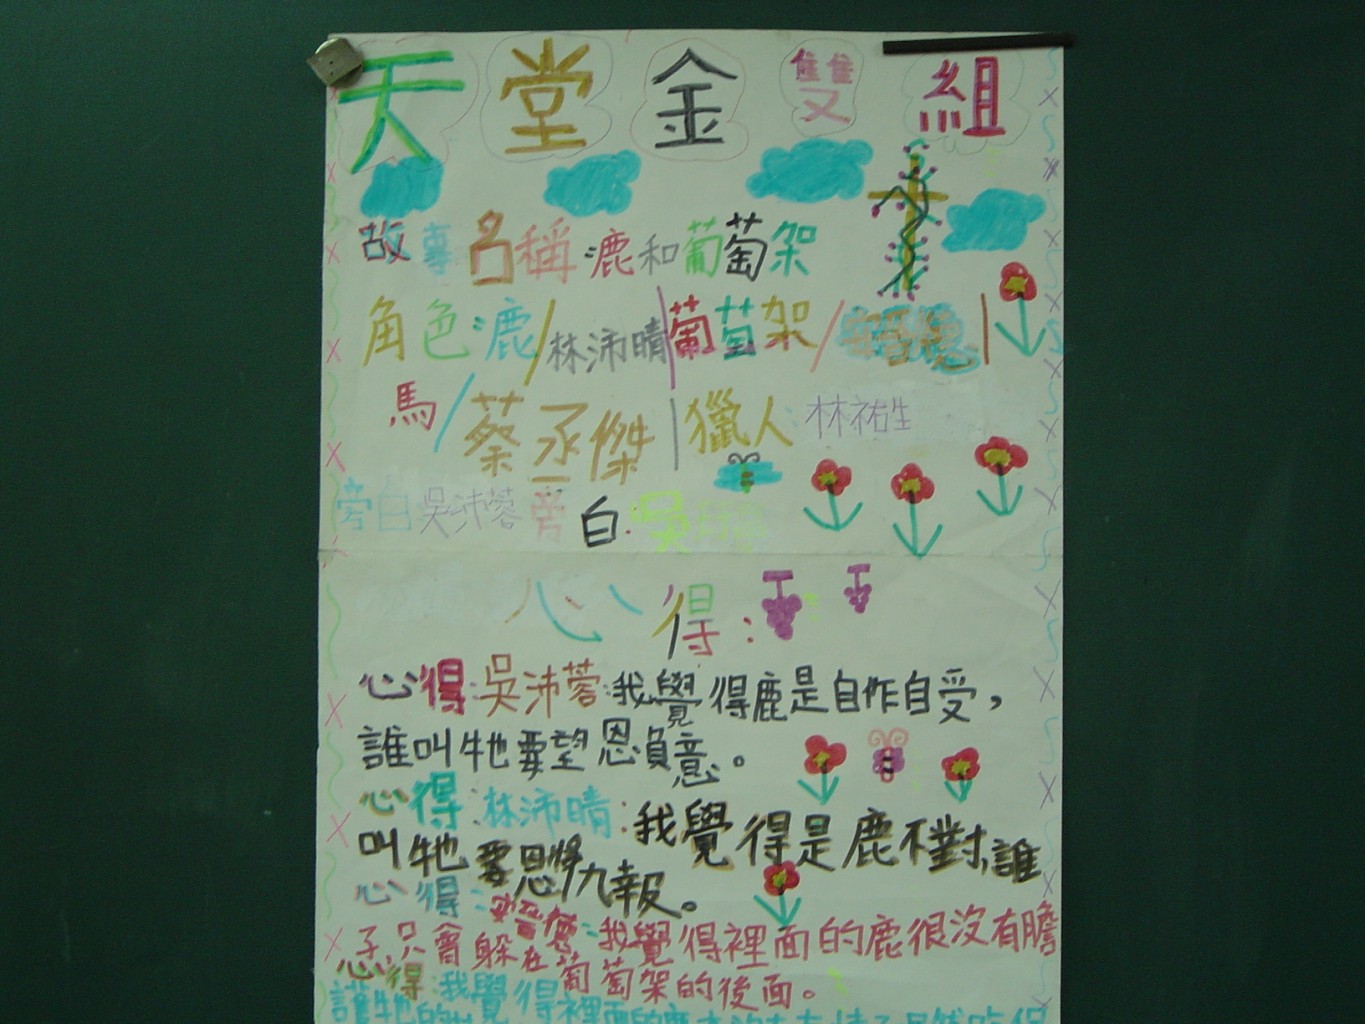 天堂金雙組
故事名稱:漉和葡萄架
角色漉/林沛晴|葡萄架/ |
馬/蔡丞傑|獵人:林祐生
旁白吳沛蓉旁白:吳
心得:
心得:吳沛蓉:我覺得鹿是自作自受,
誰叫牠要望恩負意。
心得:林沛晴:我覺得是鹿不對,誰
叫牠要恩將九報。
心得: :我覺得裡面的鹿很沒有膽
子只會躲在葡萄架的後面。
心得:我覺得裡面的鹿
護牠的